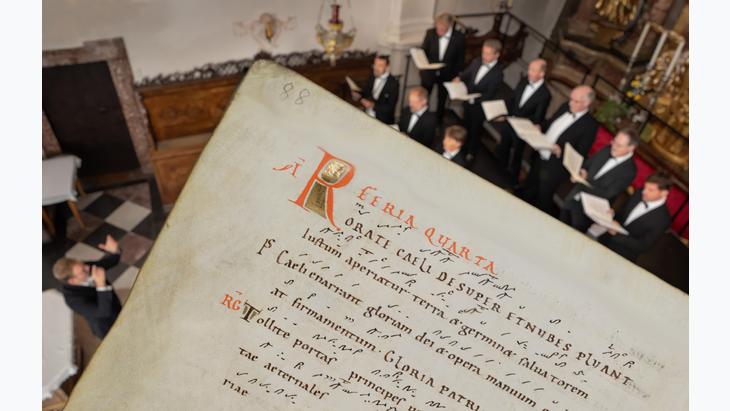 88
FERIA QUARTA
RORATE CAELI DESUPER ET NUBES PLUANT
Iustum aperiatur terra & germin& salvatorem
Ps Caeli enarrant gloriam dei & opera manuum
at firmamentum. GLORIA PATRI
RG Tollite portas principes
tae aeternales
riae